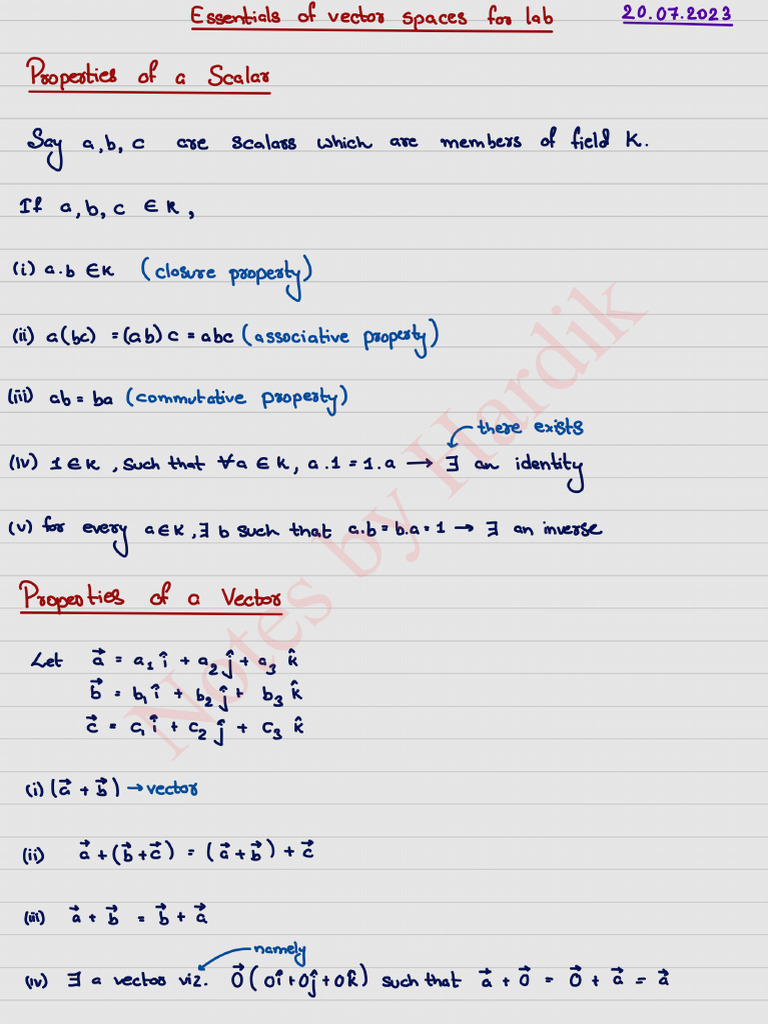 Essentials of vector spaces for lab 20.07.2023
Properties of a Scalar
Say a,b,c are scalars which are members of field K.
If a,b,c ∈ K,
(i) a.b ∈ K (closure property)
(ii) a(bc) = (ab)c = abc (associative property)
(iii) ab = ba (commutative property)
there exists
(iv) 1 ∈ K, such that ∀a ∈ K, a.1 = 1.a → ∃ an identity
(v) for every a ∈ K, ∃ b such that a.b = b.a = 1 → ∃ an inverse
Properties of a Vector
Let a⃗ = a₁ î + a₂ ĵ + a₃ k̂
b⃗ = b₁ î + b₂ ĵ + b₃ k̂
c⃗ = c₁ î + c₂ ĵ + c₃ k̂
(i) (a⃗ + b⃗) → vector
(ii) a⃗ + (b⃗ + c⃗) = (a⃗ + b⃗) + c⃗
(iii) a⃗ + b⃗ = b⃗ + a⃗
namely
(iv) ∃ a vector viz. 0⃗ (0î + 0ĵ + 0k̂) such that a⃗ + 0⃗ = 0⃗ + a⃗ = a⃗
Notes by Hardik